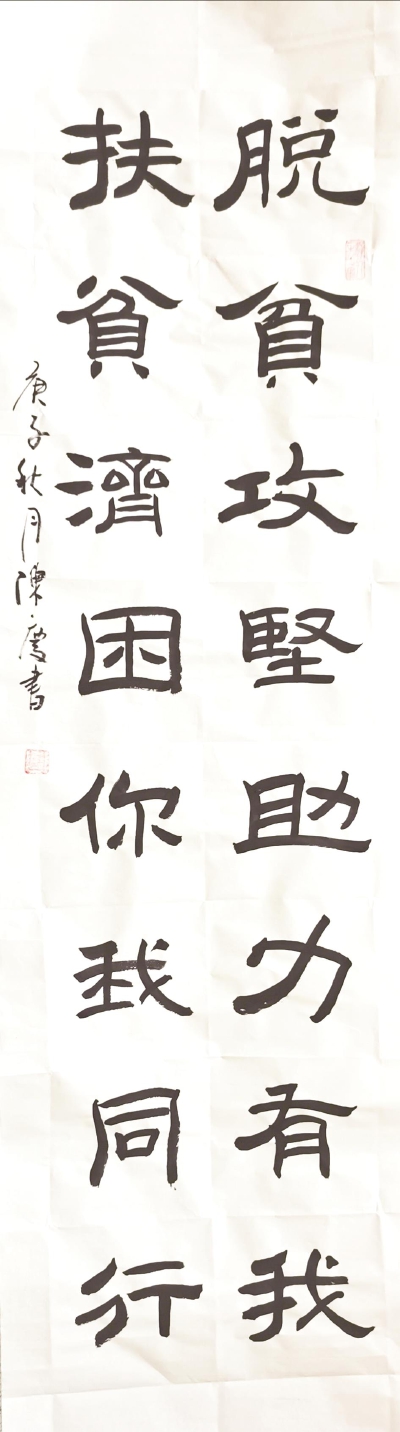 脱貧攻堅助力有我
扶貧濟困你我同行
庚子秋月陳慶書